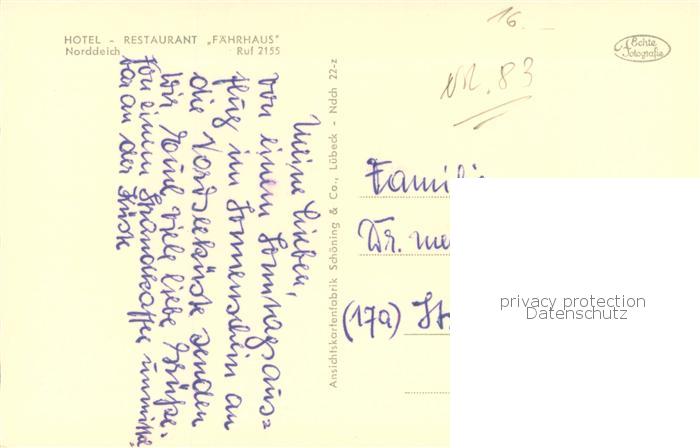 HOTEL - RESTAURANT „FÄHRHAUS"
Norddeich Ruf 2155
Echte Fotografie
16.-
Nr. 83
Meine Lieben,
von einem Sonntagsaus=
flug im Sonnenschein an
die Nordseeküste senden
wir Euch viele liebe Grüße.
von einem Strandkaffee unmittel
bar an der Küste
Ansichtskartenfabrik Schöning & Co., Lübeck - Ndch 22-z
Familie
Dr. me
(17a)
privacy protection
Datenschutz